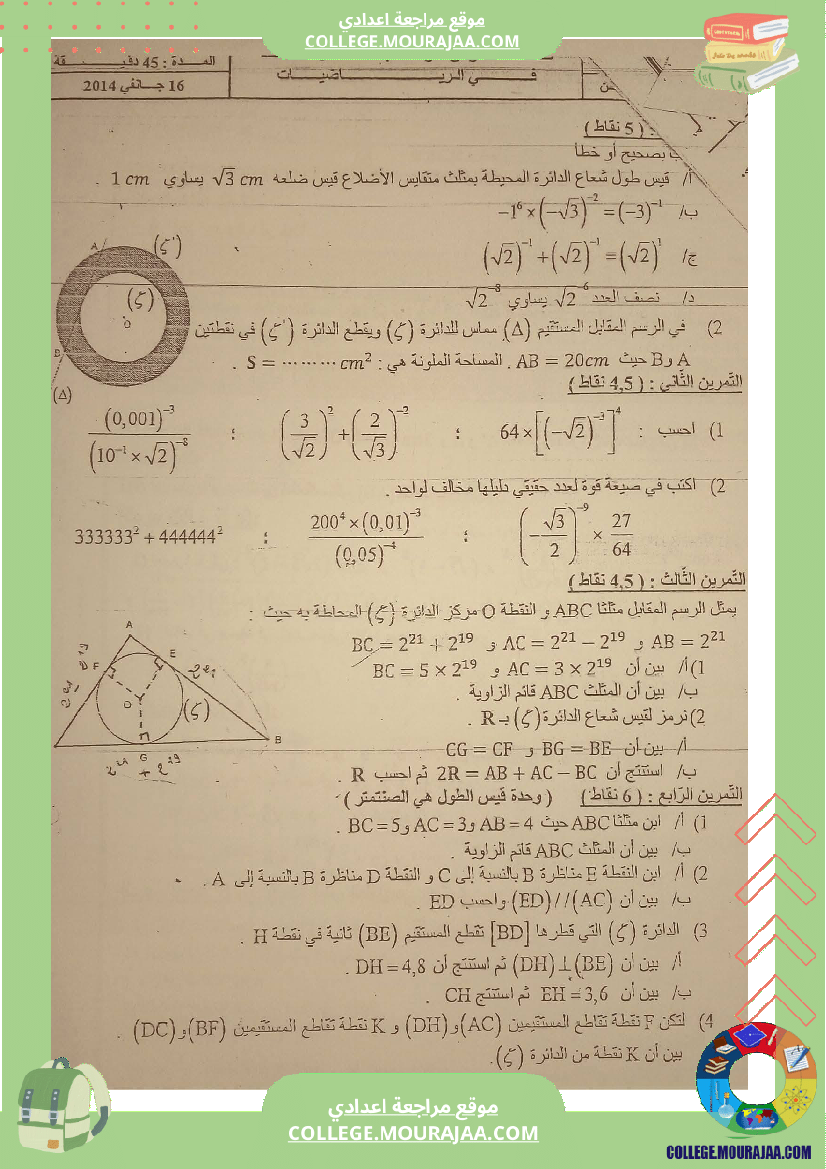 موقع مراجعة اعدادي
COLLEGE.MOURAJAA.COM
المدة : 45 دقيقة
في الرياضيات
16 جانفي 2014
: ( 5 نقاط )
بصحيح أو خطأ
أ/ قيس طول شعاع الدائرة المحيطة بمثلث متقايس الأضلاع قيس ضلعه √3 cm يساوي 1 cm .
ب/ −1⁶ × (−√3)⁻² = (−3)⁻¹
ج/ (√2)⁻¹ + (√2)⁻¹ = (√2)¹
د/ نصف العدد √2⁻⁶ يساوي √2⁻⁸
2) في الرسم المقابل المستقيم (Δ) مماس للدائرة (ζ) ويقطع الدائرة (ζ') في نقطتين
A و B حيث AB = 20cm . المساحة الملونة هي : S = ……… cm² .
A (ζ')
(ζ)
O
B
(Δ)
التمرين الثاني : ( 4,5 نقاط )
1) احسب : 64 × [(−√2)⁻³]⁴ ؛ (3/√2)² + (2/√3)⁻² ؛ (0,001)⁻³ / (10⁻¹ × √2)⁻⁸
2) اكتب في صيغة قوة لعدد حقيقي دليلها مخالف لواحد .
(−√3/2)⁻⁹ × 27/64 ؛ 200⁴ × (0,01)⁻³ / (0,05)⁻⁴ ؛ 333333² + 444444²
التمرين الثالث : ( 4,5 نقاط )
يمثل الرسم المقابل مثلثا ABC و النقطة O مركز الدائرة (ζ) المحاطة به حيث :
AB = 2²¹ و AC = 2²¹ − 2¹⁹ و BC = 2²¹ + 2¹⁹
1) أ/ بين أن AC = 3 × 2¹⁹ و BC = 5 × 2¹⁹
ب/ بين أن المثلث ABC قائم الزاوية .
2) نرمز لقيس شعاع الدائرة (ζ) بـ R .
أ/ بين أن BG = BE و CG = CF
ب/ استنتج أن 2R = AB + AC − BC ثم احسب R .
A
E
F
O
(ζ)
B
G
2²¹ + 2¹⁹
التمرين الرابع : ( 6 نقاط ) ( وحدة قيس الطول هي الصنتمتر )
1) أ/ ابن مثلثا ABC حيث AB = 4 و AC = 3 و BC = 5 .
ب/ بين أن المثلث ABC قائم الزاوية .
2) أ/ ابن النقطة E مناظرة B بالنسبة إلى C و النقطة D مناظرة B بالنسبة إلى A .
ب/ بين أن (ED) // (AC) واحسب ED .
3) الدائرة (ζ) التي قطرها [BD] تقطع المستقيم (BE) ثانية في نقطة H .
أ/ بين أن (DH) ⊥ (BE) ثم استنتج أن DH = 4,8 .
ب/ بين أن EH = 3,6 ثم استنتج CH .
4) لتكن F نقطة تقاطع المستقيمين (AC) و (DH) و K نقطة تقاطع المستقيمين (BF) و (DC) .
بين أن K نقطة من الدائرة (ζ).
موقع مراجعة اعدادي
COLLEGE.MOURAJAA.COM
COLLEGE.MOURAJAA.COM